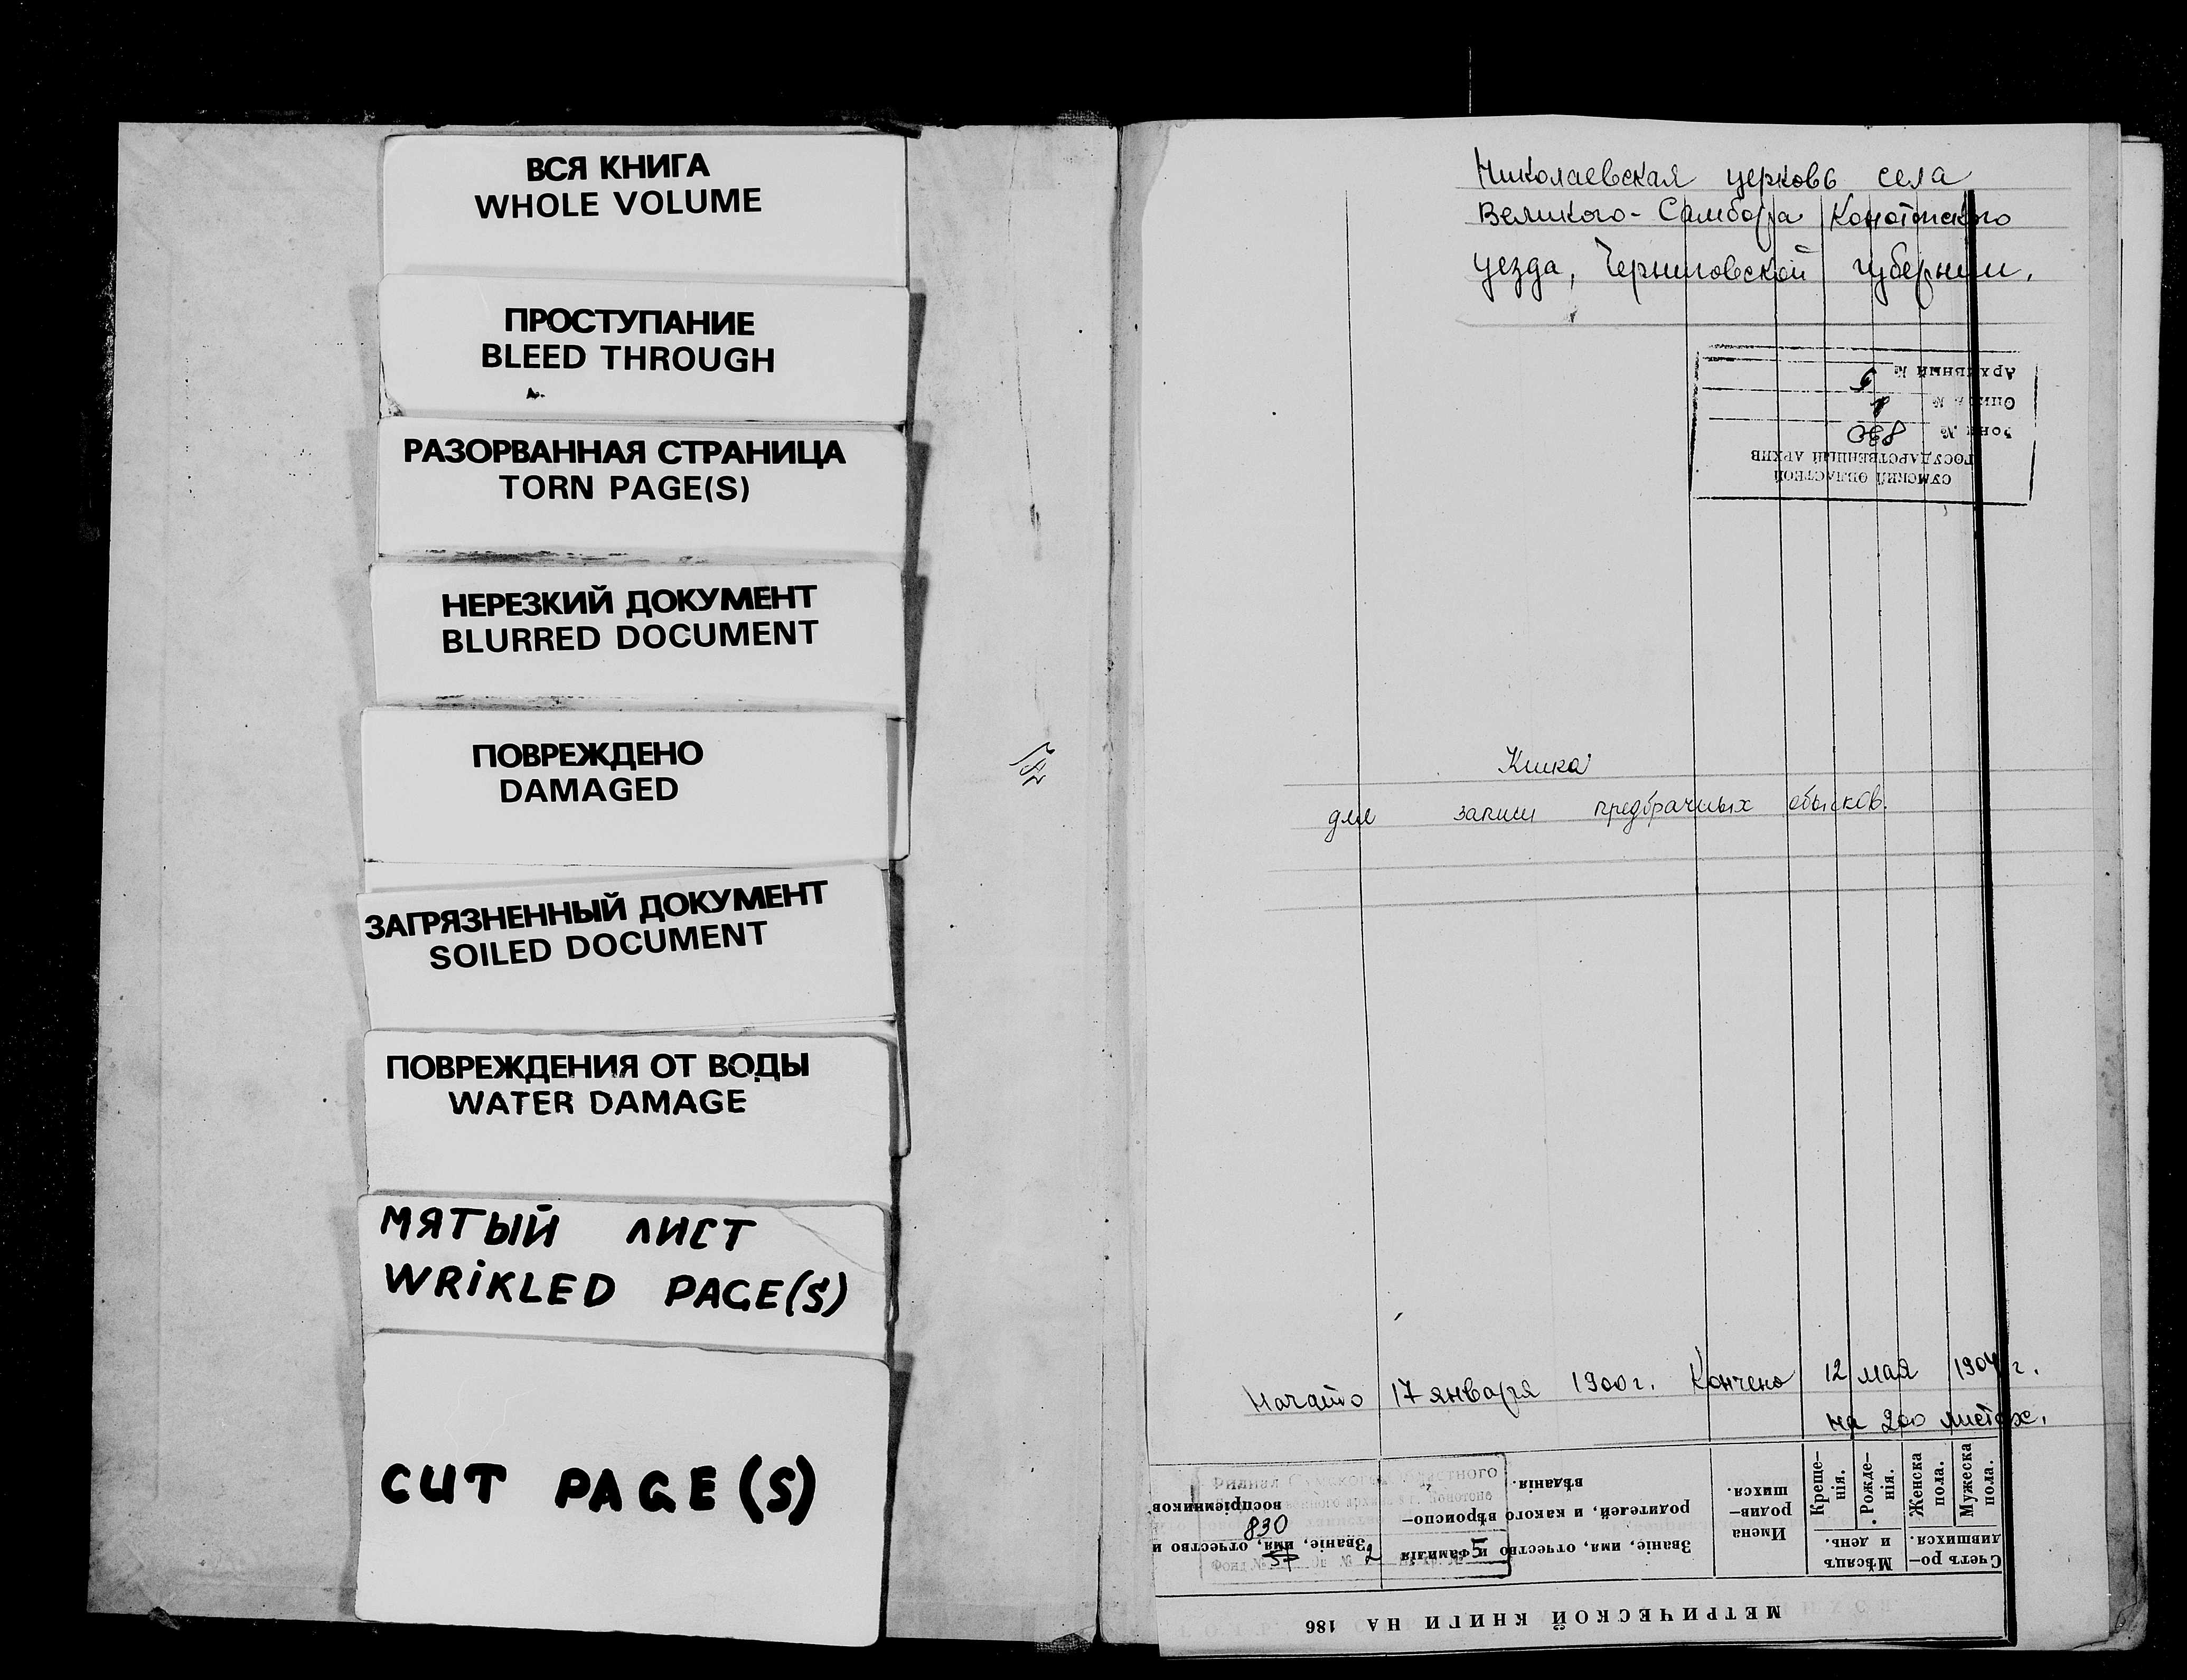 ВСЯ КНИГА
WHOLE VOLUME
ПРОСТУПАНИЕ
BLEED THROUGH
РАЗОРВАННАЯ СТРАНИЦА
TORN PAGE(S)
НЕРЕЗКИЙ ДОКУМЕНТ
BLURRED DOCUMENT
ПОВРЕЖДЕНО
DAMAGED
ЗАГРЯЗНЕННЫЙ ДОКУМЕНТ
SOILED DOCUMENT
ПОВРЕЖДЕНИЯ ОТ ВОДЫ
WATER DAMAGE
МЯТЫЙ ЛИСТ
WRIKLED PAGE(S)
CUT PAGE(S)
Николаевская церковь села
Великого-Самбора Конотопского
уезда, Черниговской губернии.
СУМСКИЙ ОБЛАСТНОЙ
ГОСУДАРСТВЕННЫЙ АРХИВ
Фонд № 830
Опись №
Архивный № 5
Книга
для записи предбрачных обысков.
Начато 17 января 1900 г. Кончено 12 мая 1904 г.
на 200 листах.
МЕТРИЧЕСКОЙ КНИГИ НА 186
Счетъ родившихся.
Мужеска пола.
Женска пола.
Мѣсяцъ и день.
Рожденія.
Крещенія.
Имена родившихся.
Званіе, имя, отчество и фамилія
родителей, и какого вѣроиспо-
вѣданія.
Званіе, имя, отчество и
воспріемниковъ
830
57
2
5